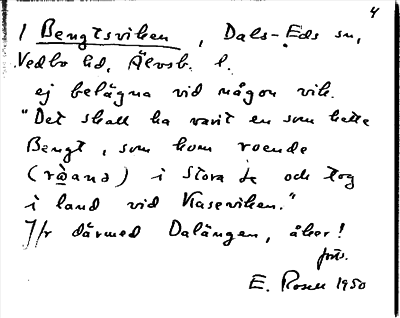 4
/ Bengtsviken, Dals-Eds sn,
Vedbo hd, Älvsb. l.
ej belägna vid någon vik.
"Det skall ha varit en som hette
Bengt, som kom roende
(röana) i Stora Le och tog
i land vid Klaseviken."
Jfr därmed Dalängen, åker!
forts.
E. Rosell 1950